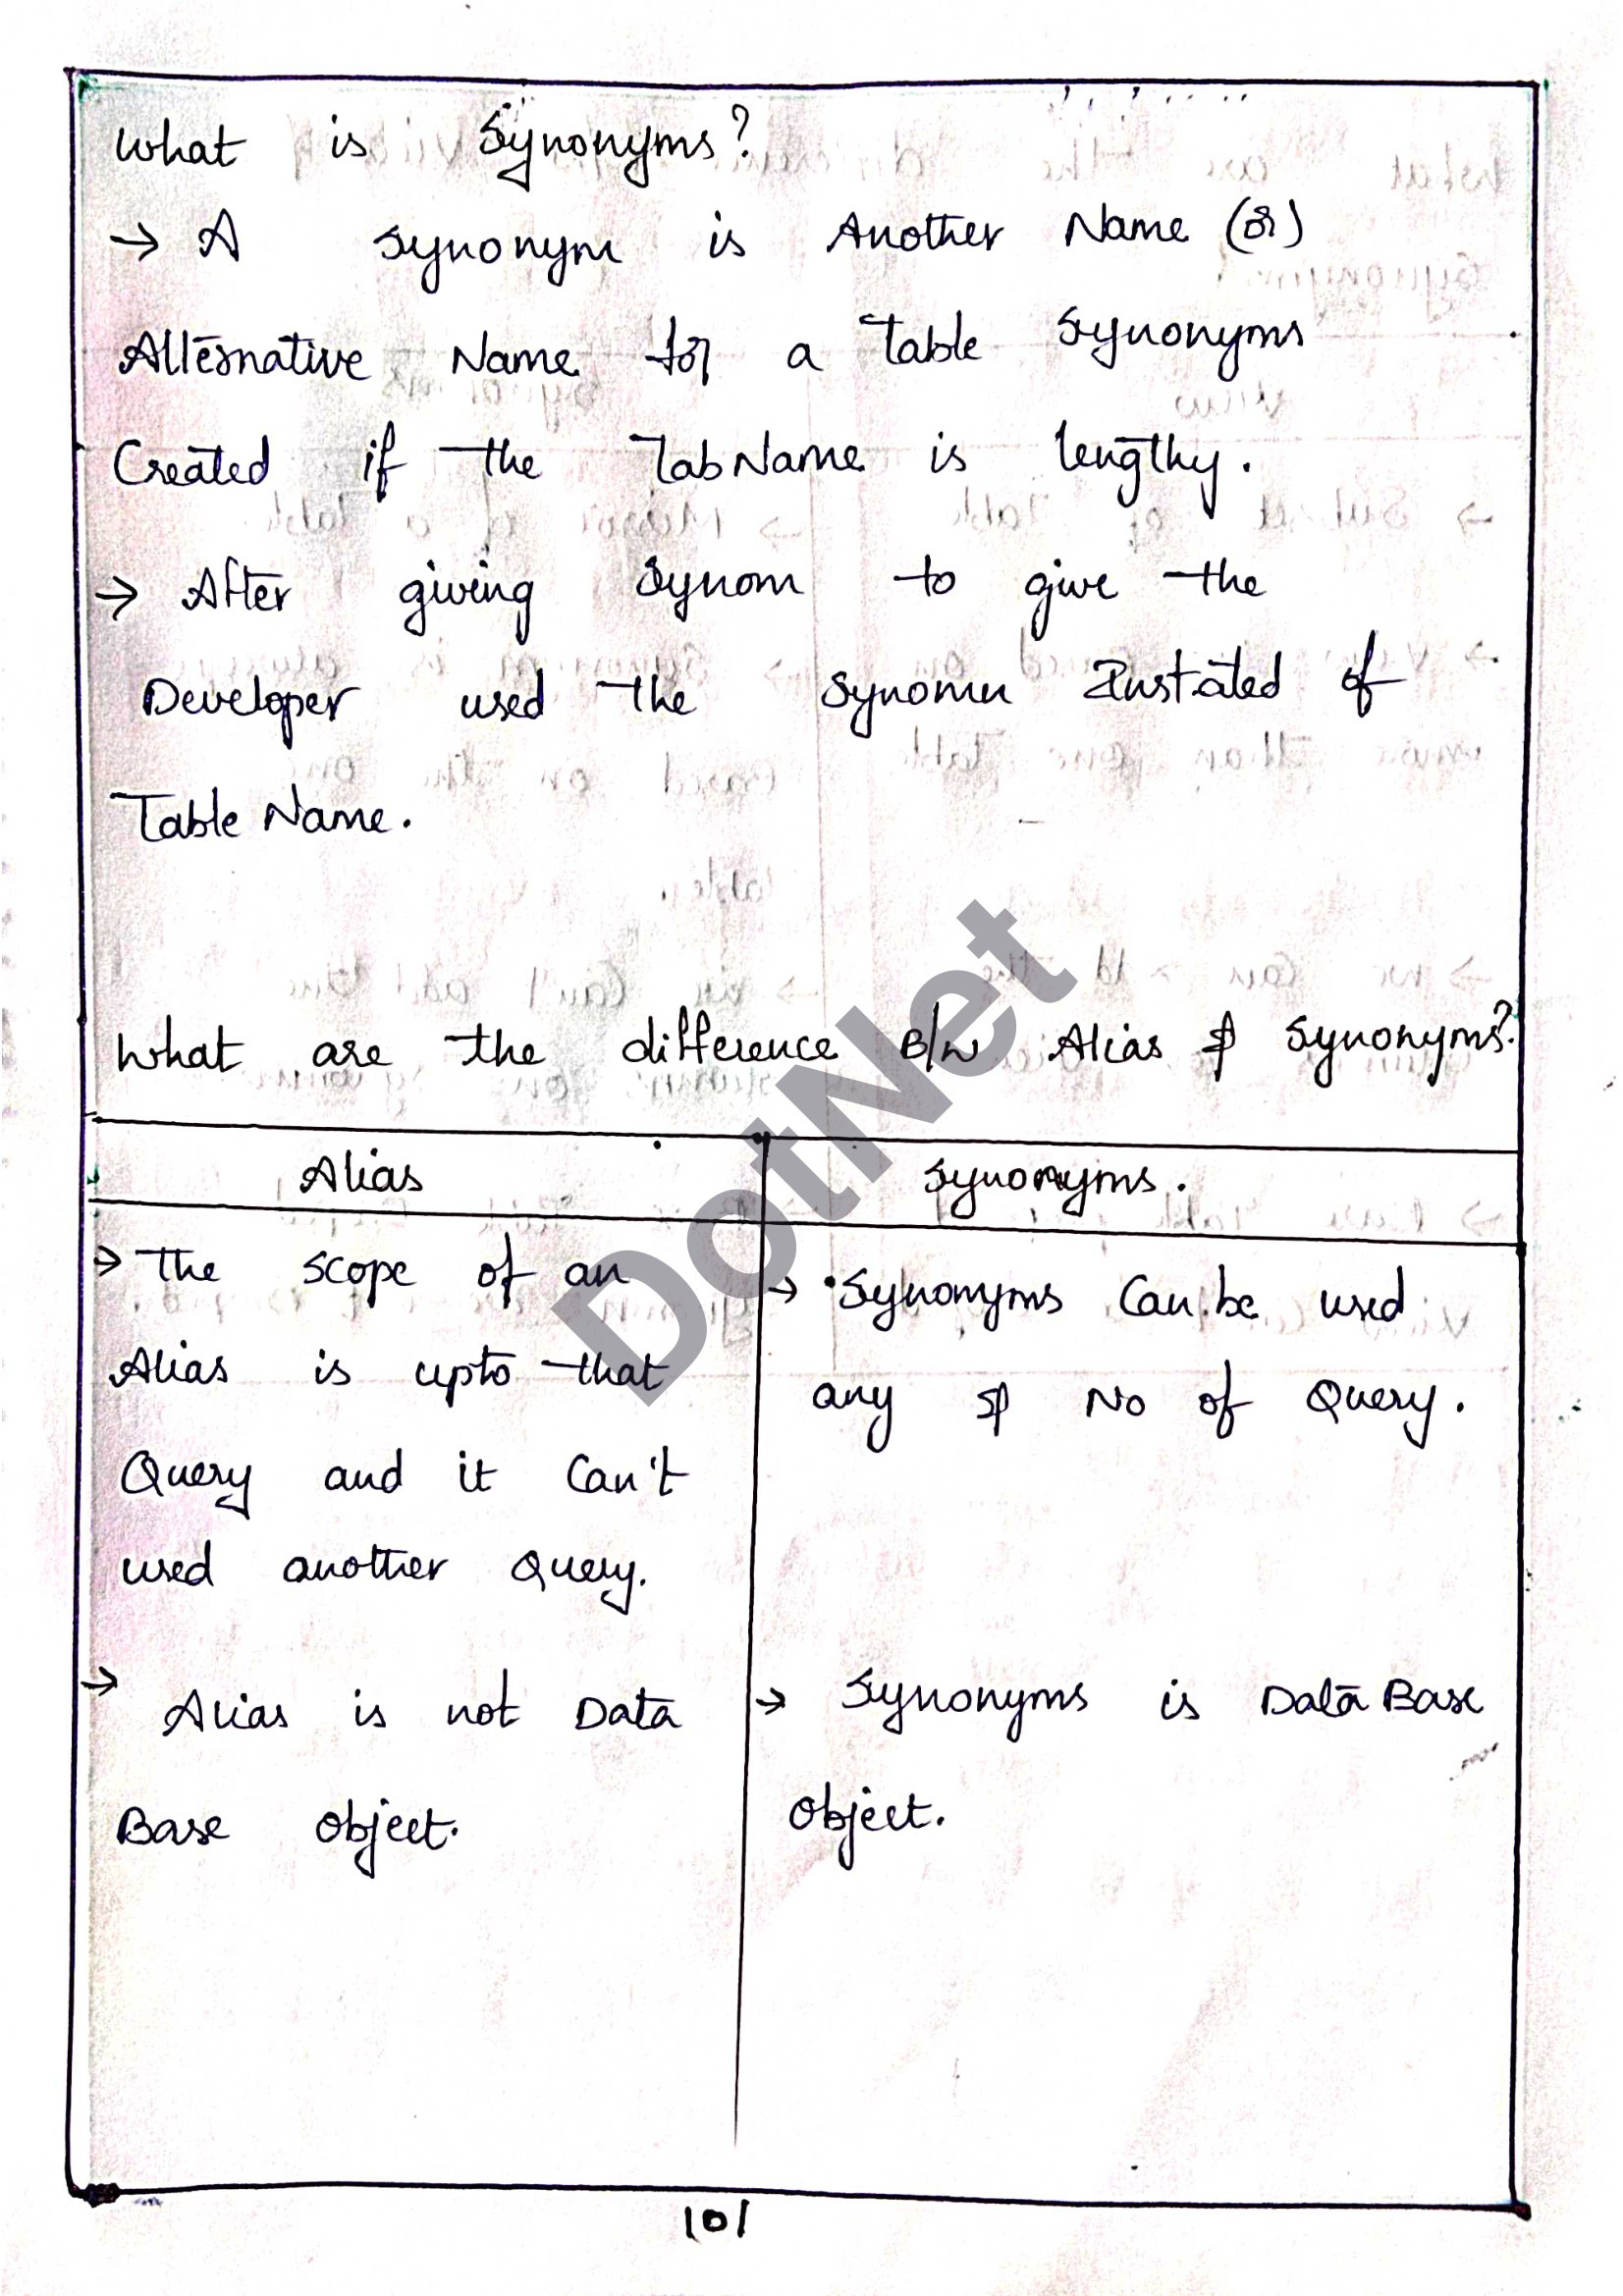 What is Synonyms?
→ A Synonym is Another Name (or)
Alternative Name for a Table Synonyms
Created if the TabName is lengthy.
→ After giving Synom to give the
Developer used the Synomn Instated of
Table Name.
What are the difference B/w Alias & Synonyms?
Alias
→ The scope of an
Alias is upto that
Query and it Can't
used another Query.
→ Alias is not Data
Base object.
Synonyms.
→ Synonyms Can be used
any No of Query.
→ Synonyms is Data Base
object.
DotNet
101